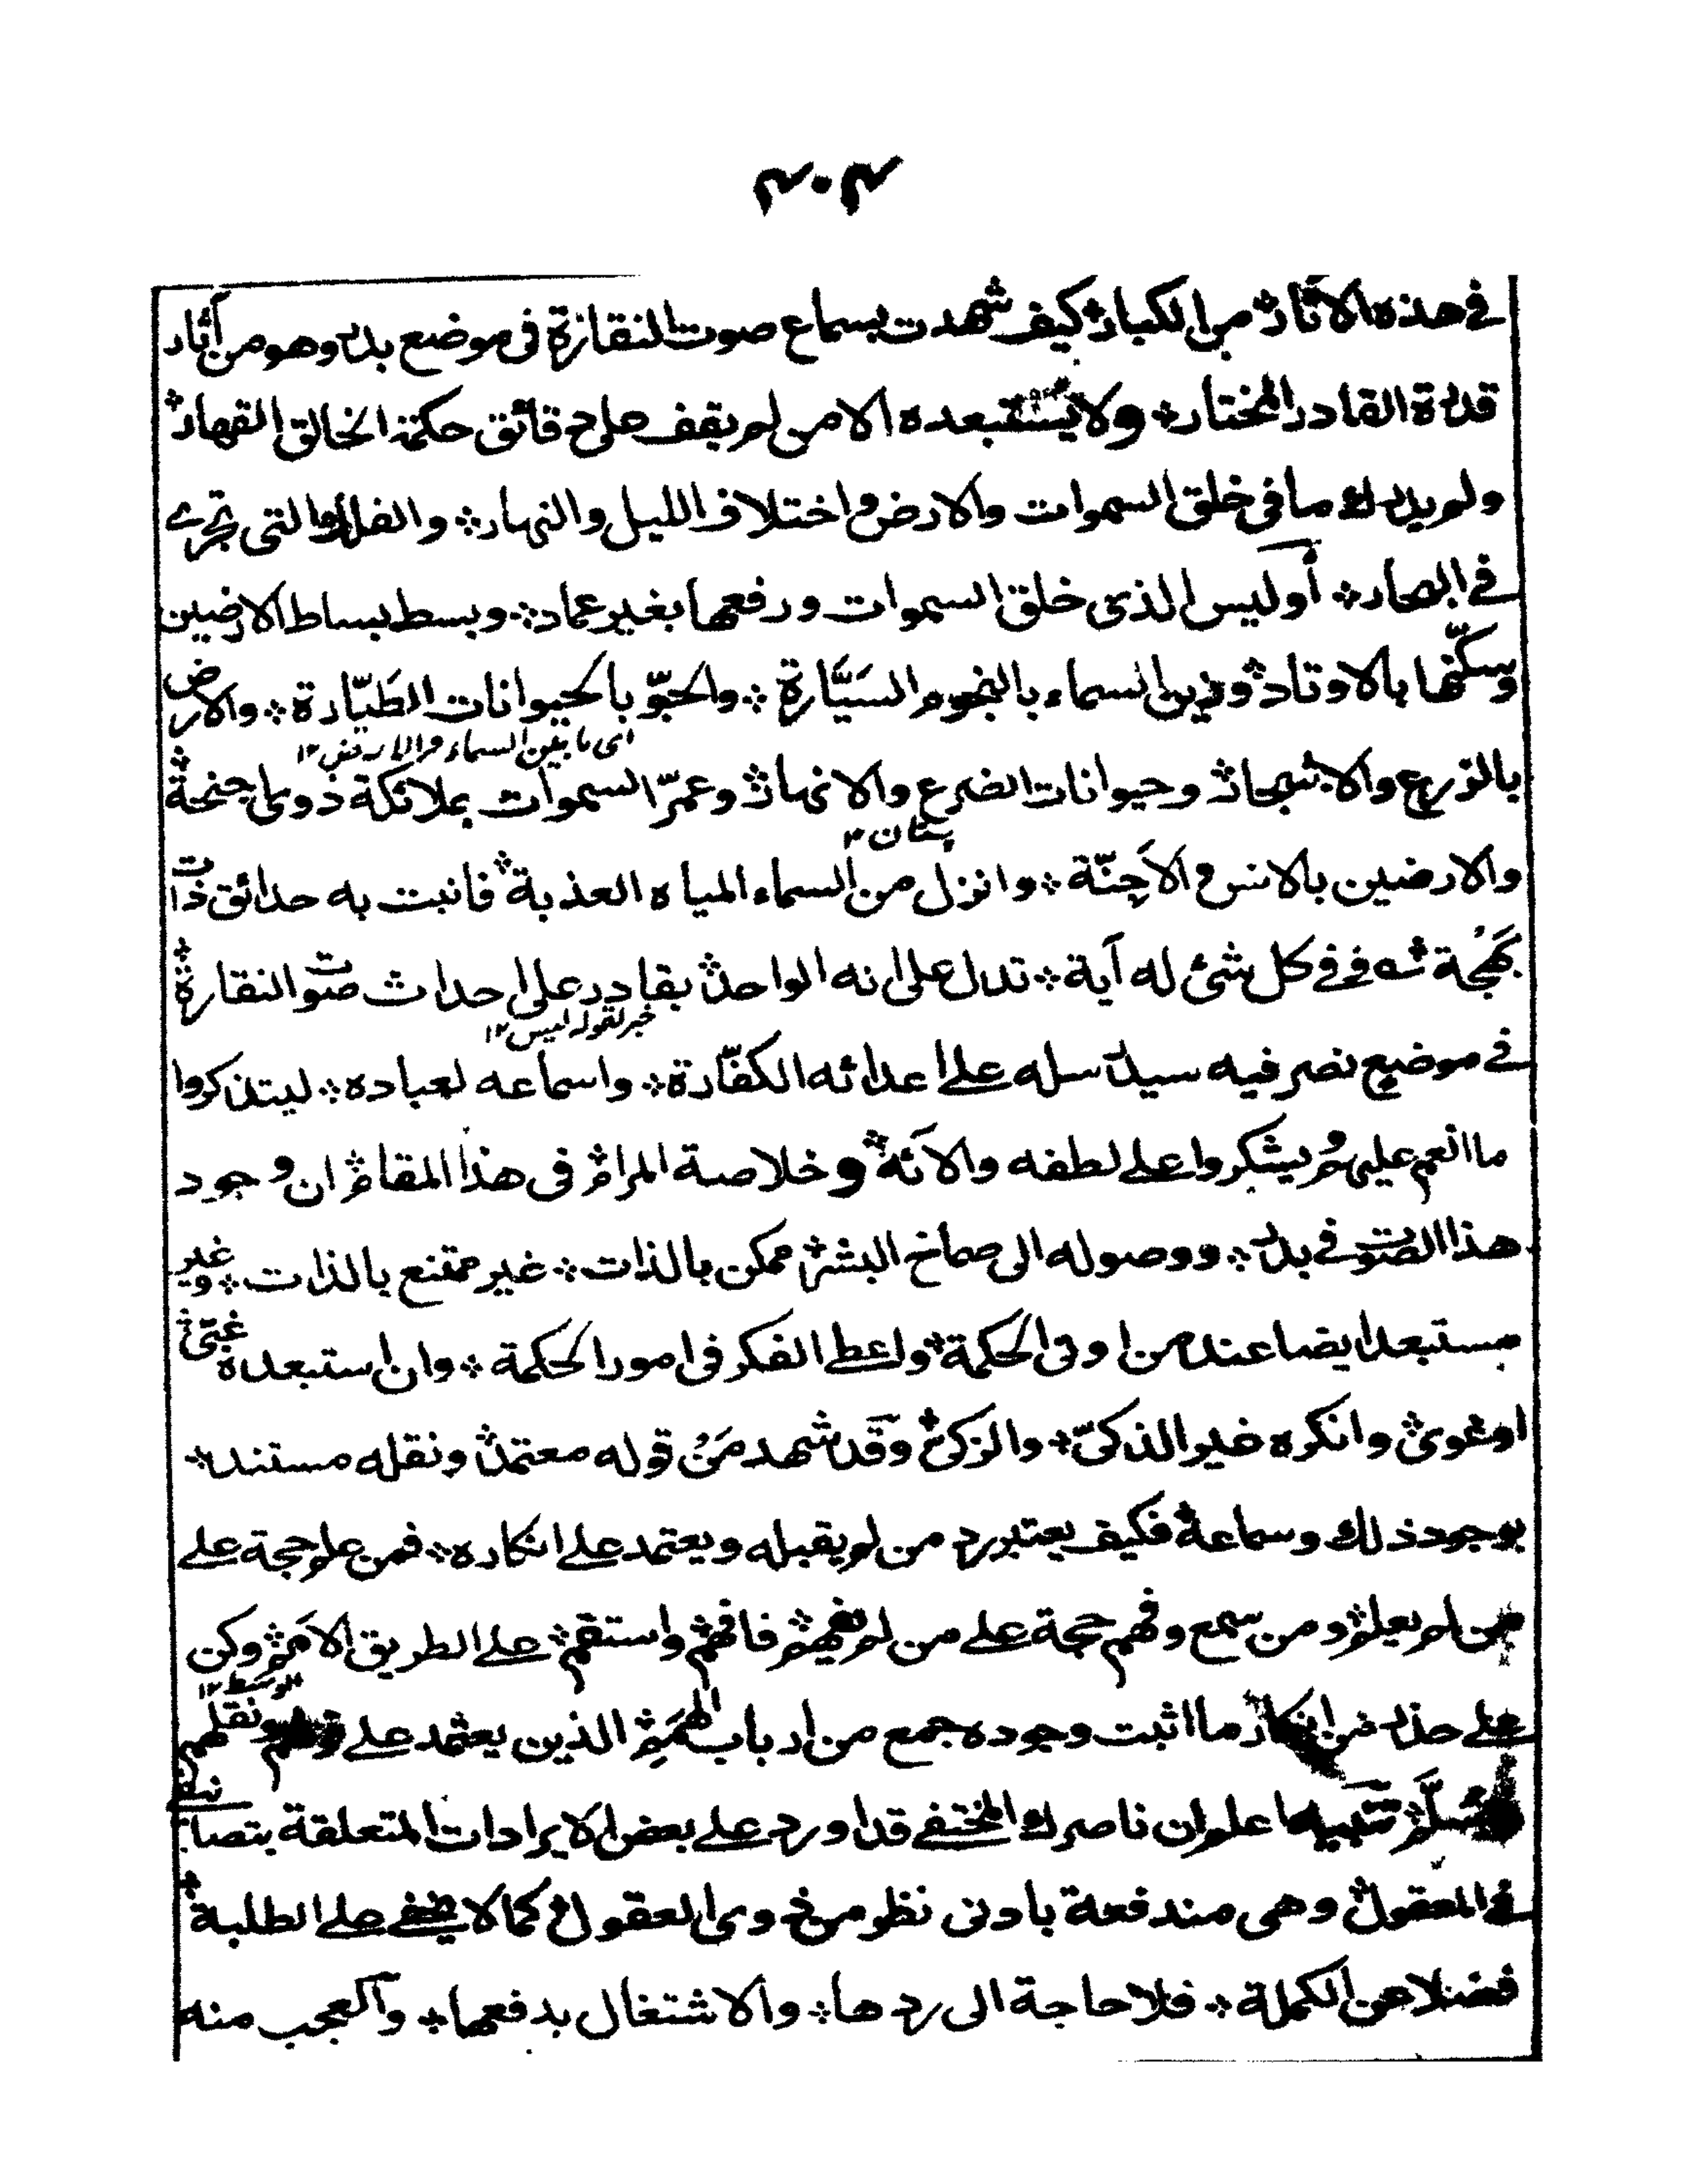 ۴۰۴
في هذه الآثار ۞ من الكبار ۞ كيف شهدت بسماع صوت النقارة في موضع بدر وهو من آثار
قدرة القادر المختار ۞ ولا يستبعده الا من لم يقف على دقائق حكمة الخالق القهار ۞
ولم يدرك ما في خلق السموات والارض واختلاف الليل والنهار ۞ والفلك التي تجرے
في البحار ۞ أو ليس الذي خلق السموات ورفعها بغير عماد ۞ وبسط بساط الارضين
وسكّنها بالاوتاد ۞ وزين السماء بالنجوم السَيَّارة ۞ والجوّ بالحيوانات الطَيّارة ۞ والارض
اى ما بين السماء والارض ۱۲
بالزرع والاشجار ۞ وحيوانات الضرع والانهار ۞ وعمرّ السموات بملائكة ذوى اجنحة ۞
پستان ۱۲
والارضين بالانس والاَجِنّة ۞ وانزل من السماء المياه العذبة ۞ فانبت به حدائق ذات
بَهْجة ۞ ففي كل شئ له آية ۞ تدل على انه الواحد ۞ بقادر على احداث صوت النقارة ۞
خبر لقوله ليس ۱۲
في موضع نصر فيه سيد رسله على اعدائه الكفّارة ۞ واسماعه لعباده ۞ ليتذكروا
ما انعم عليهم ويشكروا على لطفه وآلائه ۞ وخلاصة المرام ۞ في هذا المقام ۞ ان وجود
هذا الصوت في بدر ۞ ووصوله الى صماخ البشر ۞ ممكن بالذات ۞ غير ممتنع بالذات ۞ وغير
مستبعد ايضا عند من اوتى الحكمة ۞ واعطى الفكر في امور الحكمة ۞ وان استبعده غبىّ ۞
او غوى ۞ وانكره غير الذكىّ ۞ والزكىّ ۞ وقد شهد مَنْ قوله معتمد ۞ ونقله مستند ۞
بوجود ذلك وسماعه ۞ فكيف يعتبر رد من لم يقبله ويعتمد على انكاره ۞ فمن علم حجة على
من لم يعلم ۞ ومن سمع وفهم حجة على من لم يفهم ۞ فافهم ۞ واستقم ۞ على الطريق الاَمَم ۞ وكن
الوسط ۱۲
على حذر من انكار ما اثبت وجوده جمع من ارباب الهِمَم ۞ الذين يعتمد على قولهم ونقلهم
تنبيه اعلم ان ناصرك المختفي قد اورد على بعض الايرادات المتعلقة بتصانيفى
في المعقول ۞ وهى مندفعة بادنى نظر من ذوى العقول ۞ كما لا يخفى على الطلبة ۞
فضلا عن الكملة ۞ فلا حاجة الى ردها ۞ والاشتغال بدفعها ۞ والعجب منه